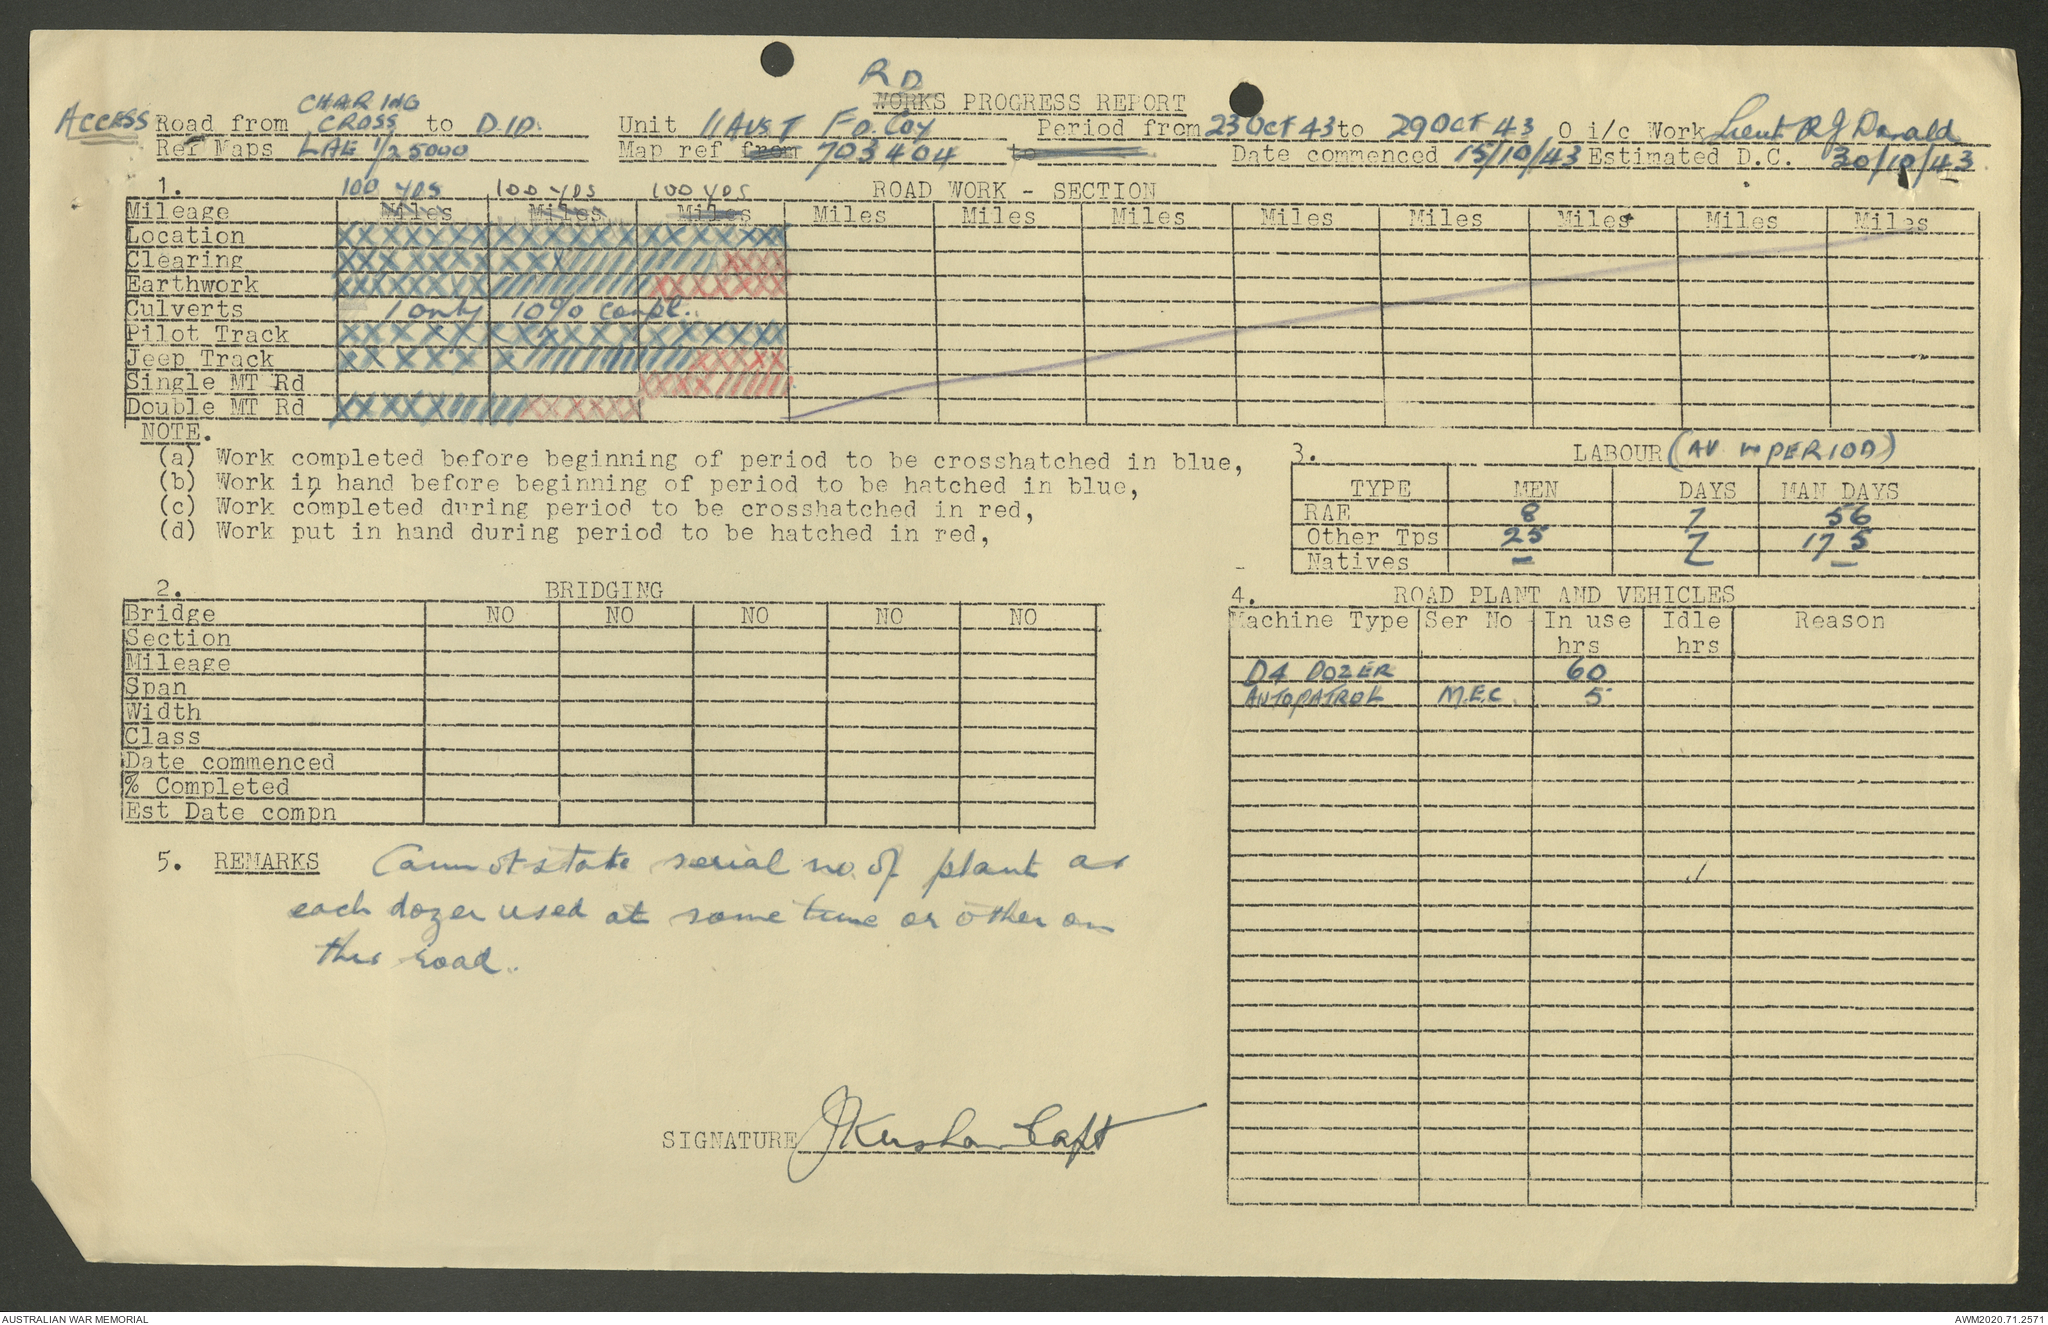 RD
WORKS PROGRESS REPORT
ACCESS Road from CHARING CROSS to D.I.D. Unit 11 AUST FD. Coy Period from 23 Oct 43 to 29 Oct 43 O i/c Work Lieut R J Donald
Ref Maps LAE 1/25000 Map ref from 703404 to Date commenced 15/10/43 Estimated D.C. 30/10/43
1. ROAD WORK - SECTION
100 yds 100 yds 100 yds
Mileage Miles Miles Miles Miles Miles Miles Miles Miles Miles Miles Miles
Location
Clearing
Earthwork
Culverts 1 only 10% compl.
Pilot Track
Jeep Track
Single MT Rd
Double MT Rd
NOTE.
(a) Work completed before beginning of period to be crosshatched in blue,
(b) Work in hand before beginning of period to be hatched in blue,
(c) Work completed during period to be crosshatched in red,
(d) Work put in hand during period to be hatched in red,
3. LABOUR (AV IN PERIOD)
TYPE MEN DAYS MAN DAYS
RAE 8 7 56
Other Tps 25 7 175
Natives - -
2. BRIDGING
Bridge NO NO NO NO NO
Section
Mileage
Span
Width
Class
Date commenced
% Completed
Est Date compn
4. ROAD PLANT AND VEHICLES
Machine Type Ser No In use hrs Idle hrs Reason
D4 DOZER 60
AUTOPATROL M.E.C. 5
5. REMARKS Cannot state serial no. of plant as
each dozer used at some time or other on
this road.
SIGNATURE J Kershaw Capt
AUSTRALIAN WAR MEMORIAL
AWM2020.71.2571